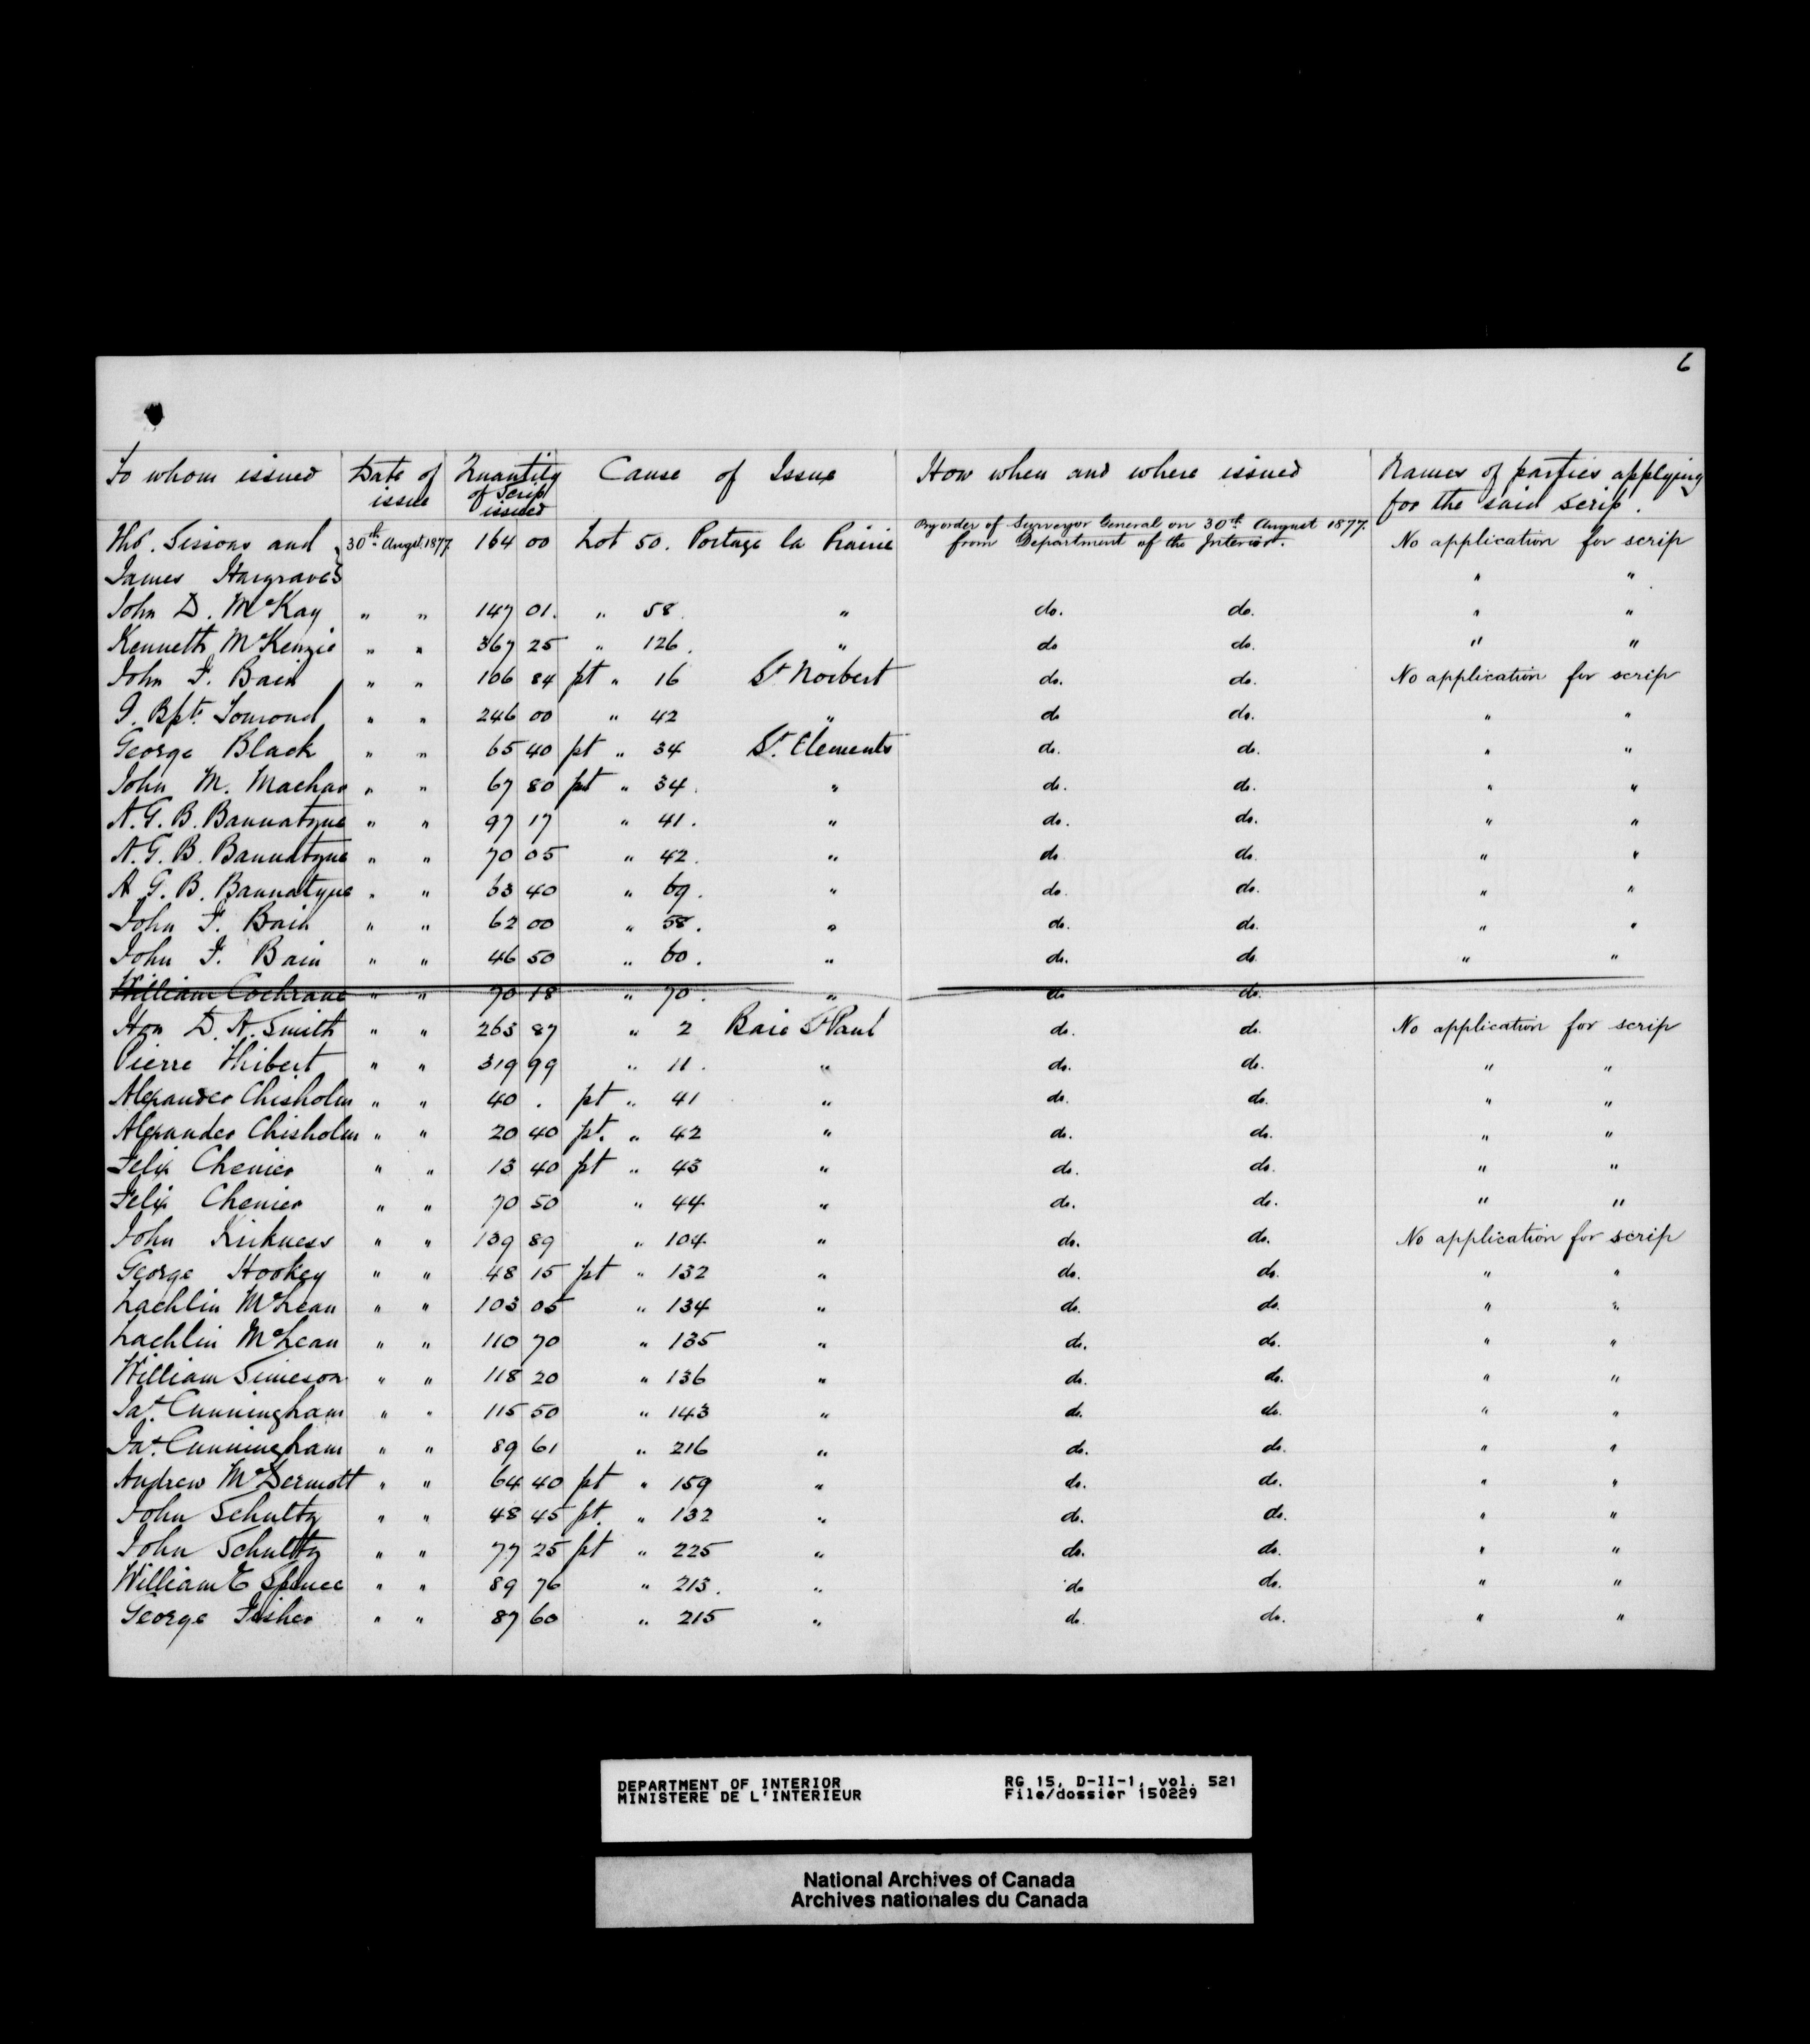 6
To whom issued Date of issue Quantity of Scrip issued Cause of Issue How when and where issued Names of parties applying for the said scrip.
Tho. Sissons and 30th Augst 1877 164 00 Lot 50. Portage la Prairie By order of Surveyor General on 30th August 1877. from Department of the Interior. No application for scrip
James Hargraves " "
John D. McKay " " 147 01. " 58. " do. do. " "
Kenneth McKenzie " " 367 25 " 126. " do do. " "
John F. Bain " " 106 84 pt " 16 St Norbert do. do. No application for scrip
J. Bpte Tourond " " 246 00 " 42 " do do. " "
George Black " " 65 40 pt " 34 St. Clements do. do. " "
John M. Machar " " 67 80 pt " 34. " do. do. " "
A. G. B. Bannatyne " " 97 17 " 41. " do. do. " "
A. G. B. Bannatyne " " 70 05 " 42. " do. do. " "
A G. B. Bannatyne " " 63 40 " 69. " do. do. " "
John F. Bain " " 62 00 " 58. " do. do. " "
John F. Bain " " 46 50 " 60. " do. do " "
William Cochrane " " 70 18 " 70. " do do.
Hon D. A. Smith " " 263 87 " 2 Baie St Paul do. do. No application for scrip
Pierre Thibert " " 319 99 " 11. " do. do. " "
Alexander Chisholm " " 40 . pt " 41 " do. do. " "
Alexander Chisholm " " 20 40 pt. " 42 " do. do. " "
Felix Chenier " " 13 40 pt " 43 " do. do. " "
Felix Chenier " " 70 50 " 44 " do. do. " "
John Kirkness " " 139 89 " 104 " do. do. No application for scrip
George Hookey " " 48 15 pt " 132 " do. do. " "
Lachlin McLean " " 103 05 " 134 " do. do. " "
Lachlin McLean " " 110 70 " 135 " do. do. " "
William Simeson " " 118 20 " 136 " do. do. " "
Jas. Cunningham " " 115 50 " 143 " do. do. " "
Jas. Cunningham " " 89 61 " 216 " do. do. " "
Andrew McDermott " " 64 40 pt " 159 " do. do. " "
John Schultz " " 48 45 pt. " 132 " do. do. " "
John Schultz " " 77 25 pt " 225 " do. do. " "
William E Spence " " 89 76 " 213. " do do. " "
George Fisher " " 87 60 " 215 " do. do. " "
DEPARTMENT OF INTERIOR RG 15, D-II-1, vol. 521
MINISTERE DE L'INTERIEUR File/dossier 150229
National Archives of Canada
Archives nationales du Canada